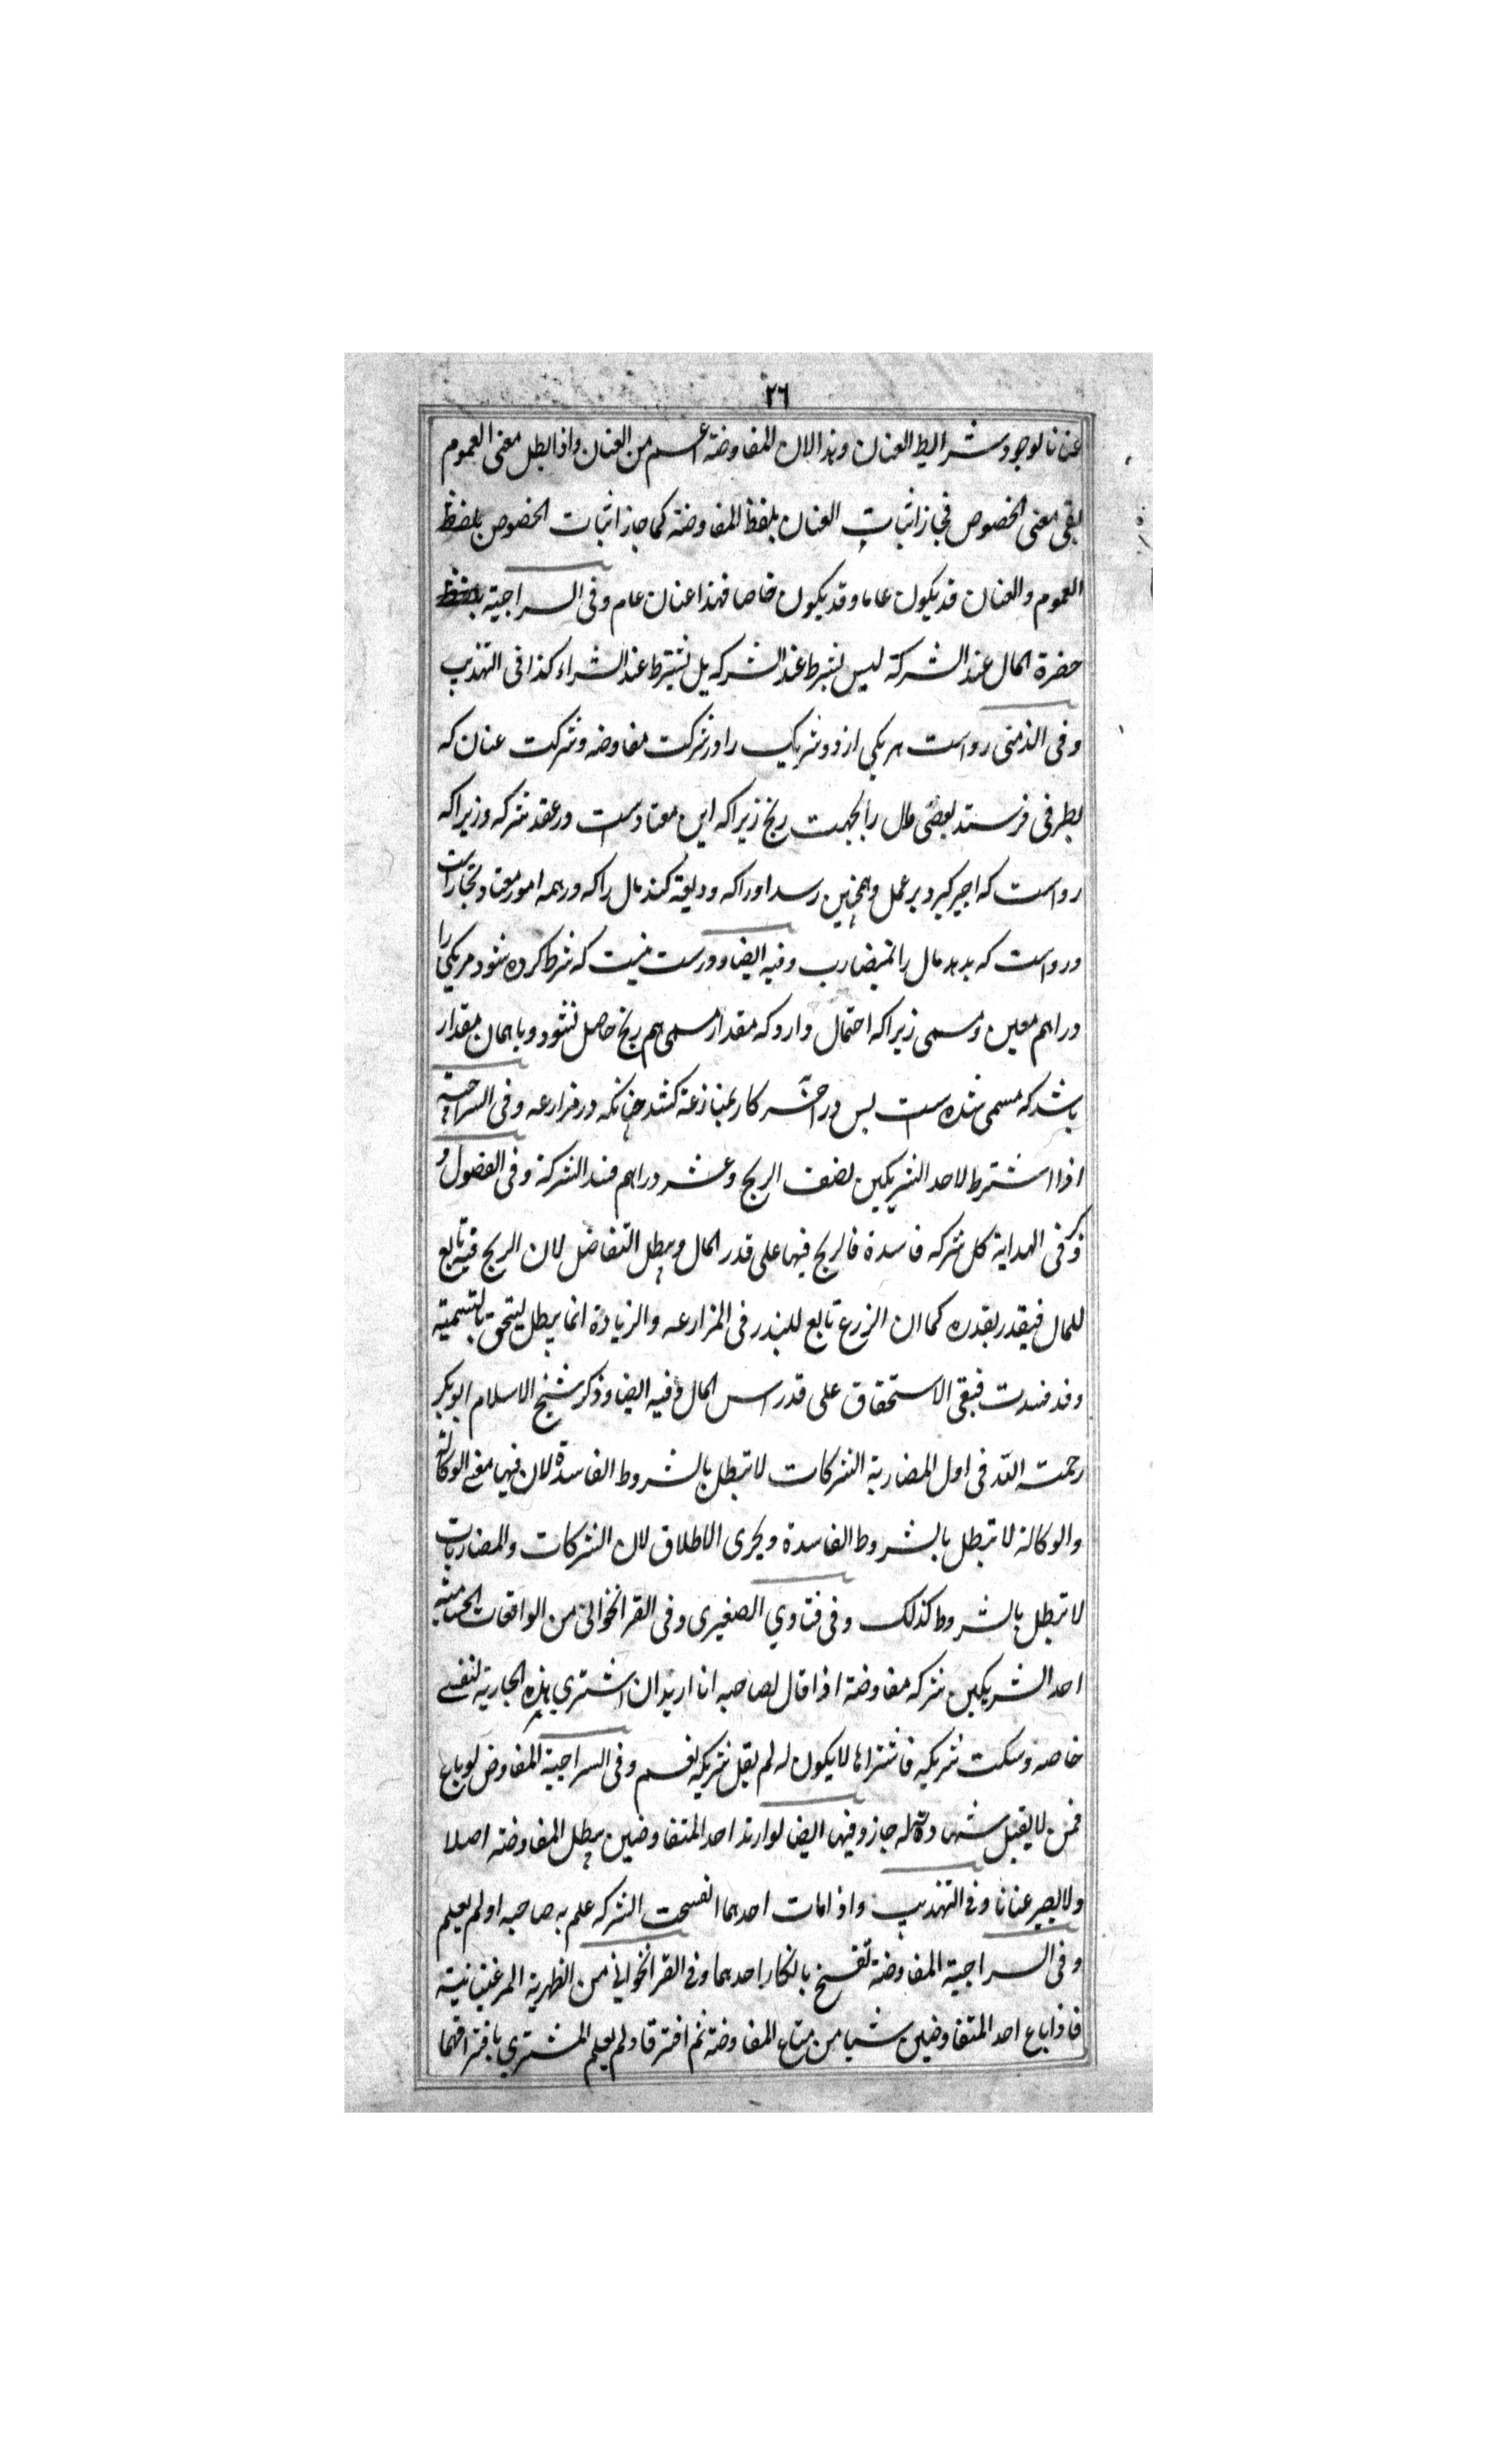 ٢٦
عنانا لوجود شرايط العنان وهذا لان المفاوضة اعم من العنان واذا بطل معنى العموم
بقى معنى الخصوص فجاز اثبات العنان بلفظ المفاوضة كما جاز اثبات الخصوص بلفظ
العموم والعنان قد يكون عاما وقد يكون خاصا فهذا عنان عام وفى السراجية
حضرة المال عند الشركة ليس بشرط عند الشركه بل يشترط عند الشراء كذا فى التهذيب
وفى الذمتى رواست هر يكي از دو شريك را در شركت مفاوضه وشركت عنان كه
بطرفى فرستد بعضى مال را بجهت ربح زيرا كه اين معتادست در عقد شركه وزيرا كه
رواست كه اجير كيرد بر عمل وهمچنين رسد اورا كه وديعة كند مال را كه در همه امور معتاد تجاراست
ورواست كه بدهد مال را بمضارب وفيه ايضا ودرست نيست كه شرط كرده شود مر يكى را
دراهم معين ومسمى زيرا كه احتمال دارد كه مقدار مسمى هم ربح حاصل نشود ويا همان مقدار
باشد كه مسمى شده است پس در آخر كار بمنازعة كشد چنانكه در مزارعه وفى السراجية
اذا اشترط لاحد الشريكين نصف الربح وعشر دراهم فسد الشركة وفى الفصول و
ذكر فى الهداية كل شركه فاسدة فالربح فيها على قدر المال ويبطل التفاضل لان الربح فيه تابع
للمال فيقدر بقدره كما ان الزرع تابع للبذر فى المزارعه والزيادة انما يبطل ليتحق بالتسمية
وقد فسدت فبقى الاستحقاق على قدر راس المال وفيه ايضا وذكر شيخ الاسلام ابو بكر
رحمت الله فى اول المضاربة الشركات لا تبطل بالشروط الفاسدة لان فيها معنى الوكالة
والوكالة لا تبطل بالشروط الفاسدة ويجرى الاطلاق لان الشركات والمضاربات
لا تبطل بالشروط كذلك وفى فتاوي الصغيرى وفى القراخوانى من الواقعات الحسامية
احد الشريكين شركه مفاوضة اذا قال لصاحبه انا اريد ان اشتري هذه الجارية لنفسى
خاصه وسكت شريكه فاشتراها لا يكون له لم يقل شريكه نعم وفى السراجية المفاوض لو باع
فمن لا يقبل شهادة له جاز وفيها ايضا لو ارتد احد المتفاوضين يبطل المفاوضة اصلا
ولا يصير عنانا وفى التهذيب واذا مات احدهما انفسخت الشركه علم به صاحبه او لم يعلم
وفى السراجية المفاوضة تفسخ بانكار احدهما وفى القراخوانى من الظهرية المرغينانية
فاذا باع احد المتفاوضين شيا من متاع المفاوضة ثم افترقا ولم يعلم المشتري بافتراقهما